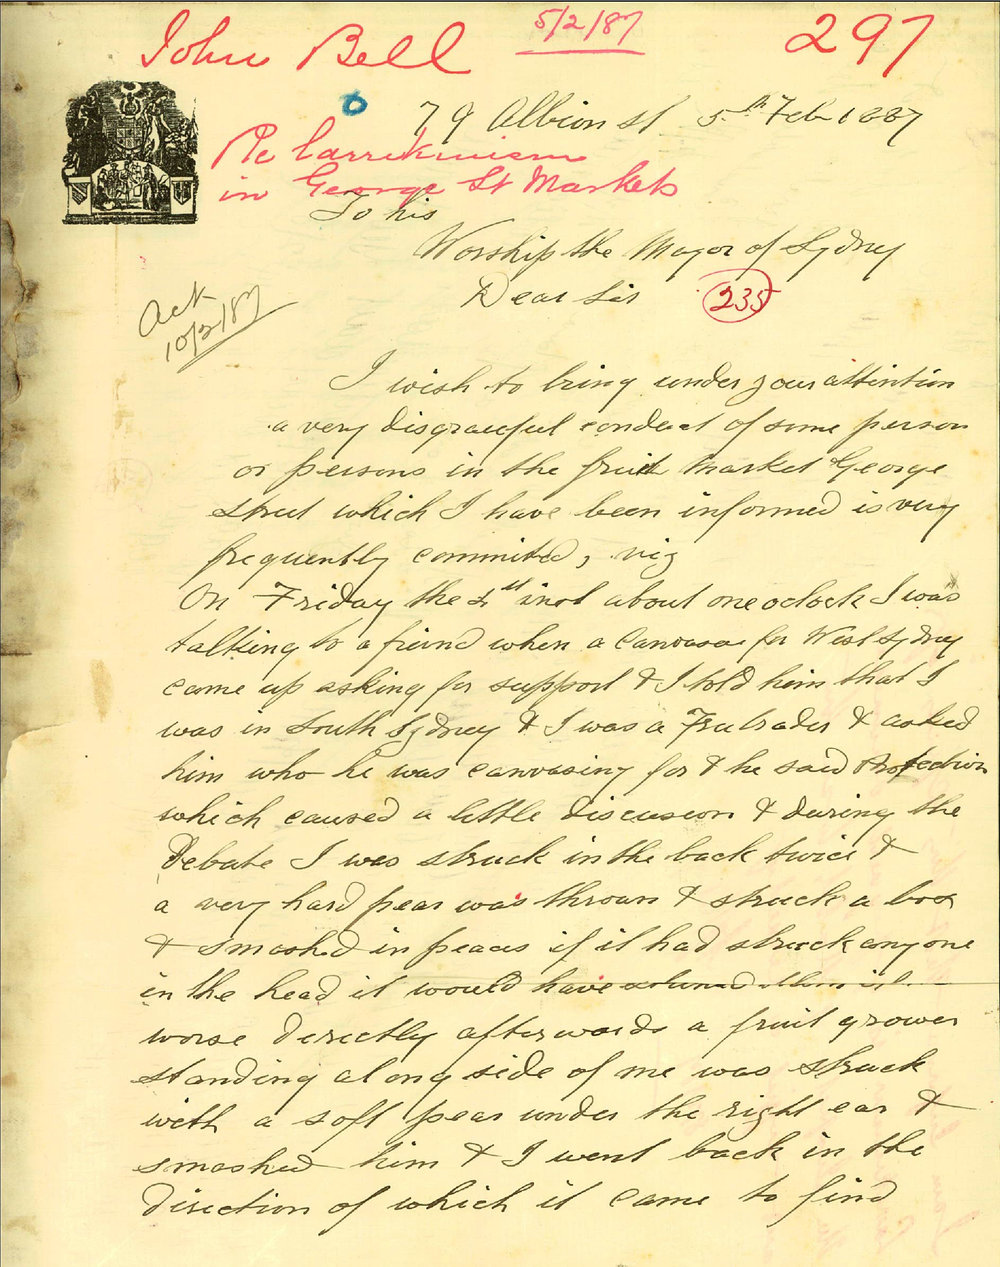 John Bell
5/2/87
297
79 Albion st 5th Feb 1887
Re Larrikinism
in George St Markets
To his
Worship the Mayor of Sydney
Dear Sir
235
Act
10/2/87
I wish to bring under your attention
a very disgraceful conduct of some person
or persons in the fruit market George
Street which I have been informed is very
frequently commited, viz
On Friday the 4th inst about one oclock I was
talking to a friend when a Canvasar for West Sydney
came up asking for support & I told him that I
was in South Sydney & I was a Freetrader & asked
him who he was canvasing for & he said Protection
which caused a little discusion & during the
Debate I was struck in the back twice &
a very hard pear was thrown & struck a box
& smashed in peaces if it had struck any one
in the head it would have
worse directly afterwards a fruit grower
standing along side of me was struck
with a soft pear under the right ear &
smashed him & I went back in the
direction of which it came to find